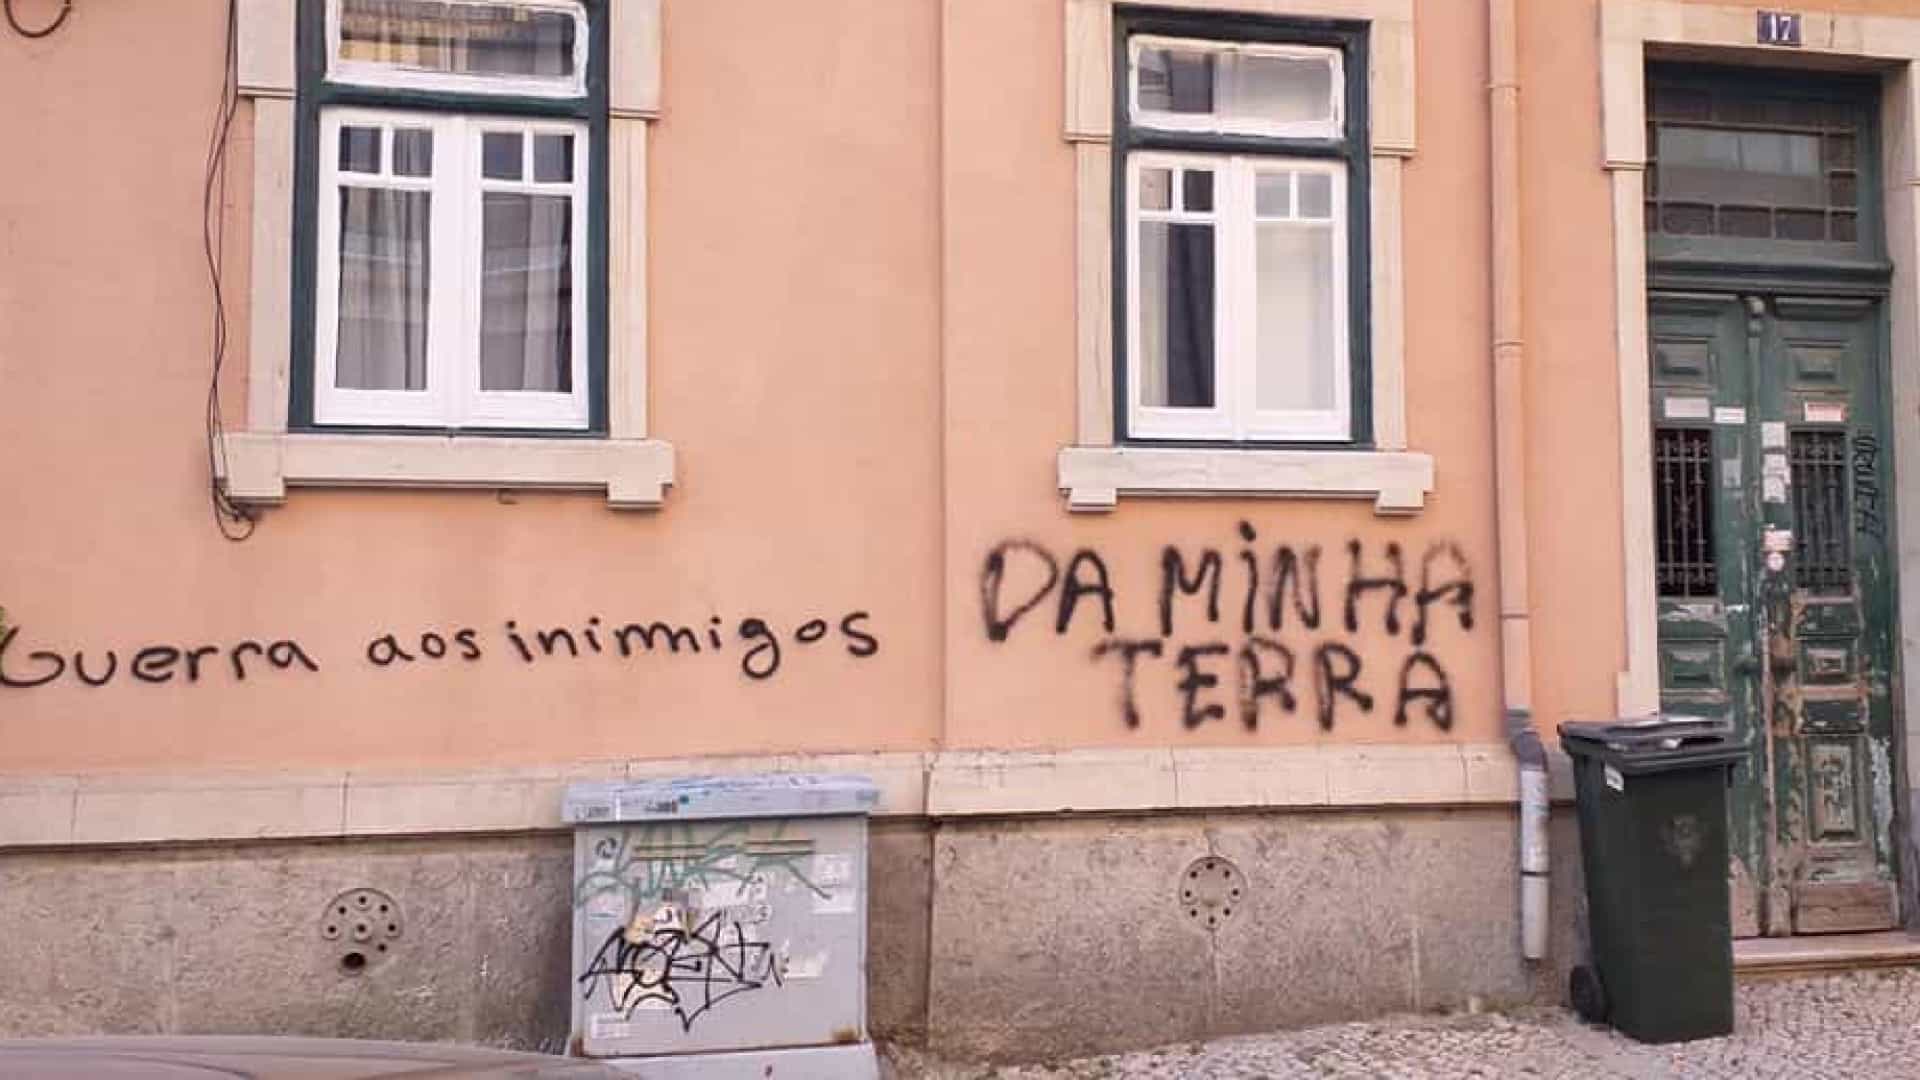 17
Guerra aos inimigos
DA MiNHA
TERRA